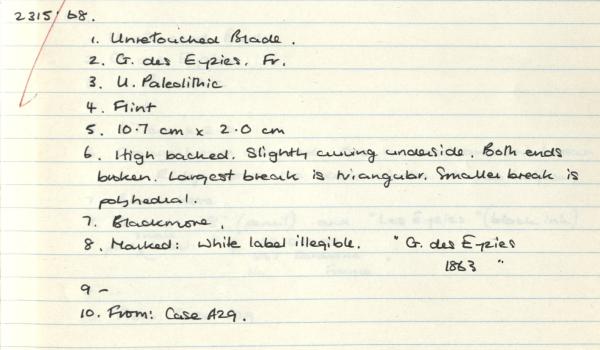 2315/68.
1. Unretouched Blade.
2. G. des Eyzies. Fr.
3. U. Paleolithic
4. Flint
5. 10.7 cm x 2.0 cm
6. High backed. Slightly curving underside. Both ends
broken. Largest break is triangular. Smaller break is
polyhedral.
7. Blackmore.
8. Marked: White label illegible. "G. des Eyzies
1863 "
9 -
10. From: Case A29.